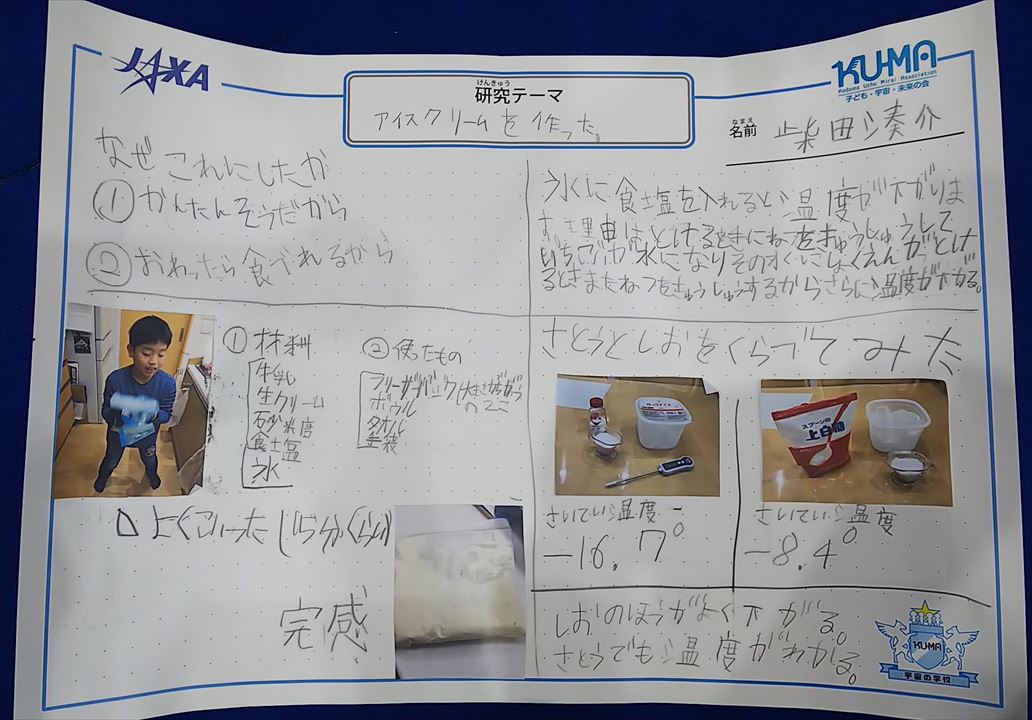 JAXA
けんきゅう
研究テーマ
アイスクリームを作った。
KU-MA
Kodomo Uchu Mirai Association
子ども・宇宙・未来の会
なまえ
名前 柴田湊介
なぜこれにしたか
①かんたんそうだから
②おわったら食べれるから
氷に食塩を入れると温度が下がりま
す。理由はとけるときにねつをきゅうしゅうして
水になりその水にしょくえんがとけ
るときまたねつをきゅうしゅうするからさらに温度が下がる。
①材料
牛乳
生クリーム
砂糖
食塩
氷
②使ったもの
フリーザーバック
ボウル
タオル
さとうとしおをくらべてみた
スプーン印
上白糖
さいてい温度
-16.7°
さいてい温度
-8.4°
完感
しおのほうがよく下がる。
さとうでも温度がわかる。
KU-MA
宇宙の学校